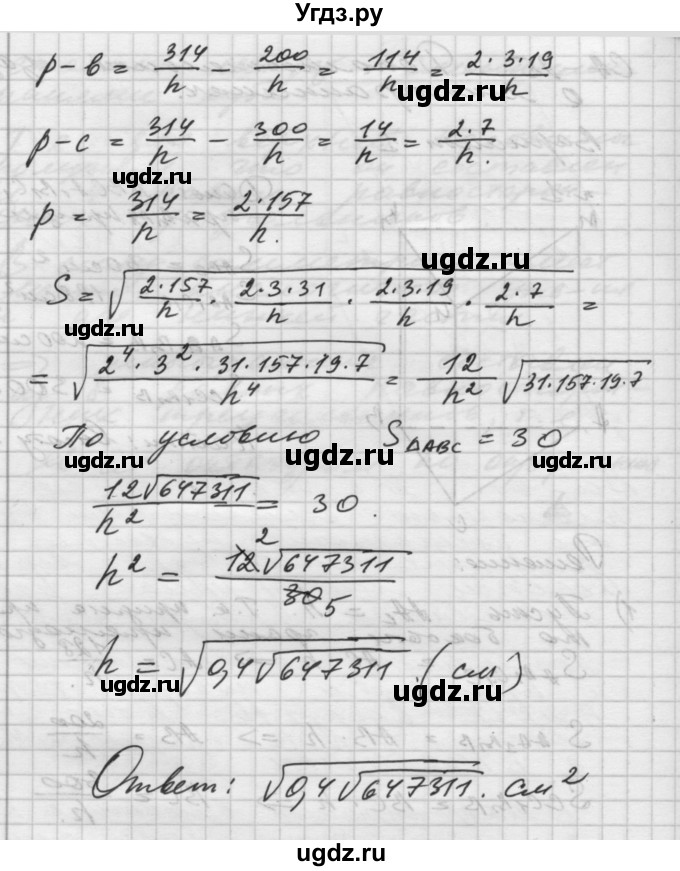 Угдз.ру
p-в = 314/h - 200/h = 114/h = 2·3·19/h
ugdz.ru
p-c = 314/h - 300/h = 14/h = 2·7/h.
ugdz.ru
p = 314/h = 2·157/h.
ugdz.ru
S = √(2·157/h · 2·3·31/h · 2·3·19/h · 2·7/h) =
= √(2⁴·3²·31·157·19·7/h⁴) = 12/h² √(31·157·19·7)
По условию S△ABC = 30
ugdz.ru ugdz.ru
12√647311/h² = 30.
h² = 12√647311/30 2 5
ugdz.ru ugdz.ru
h = √(0,4√647311) (см)
ugdz.ru ugdz.ru
Ответ: √(0,4√647311). см²
ugdz.ru